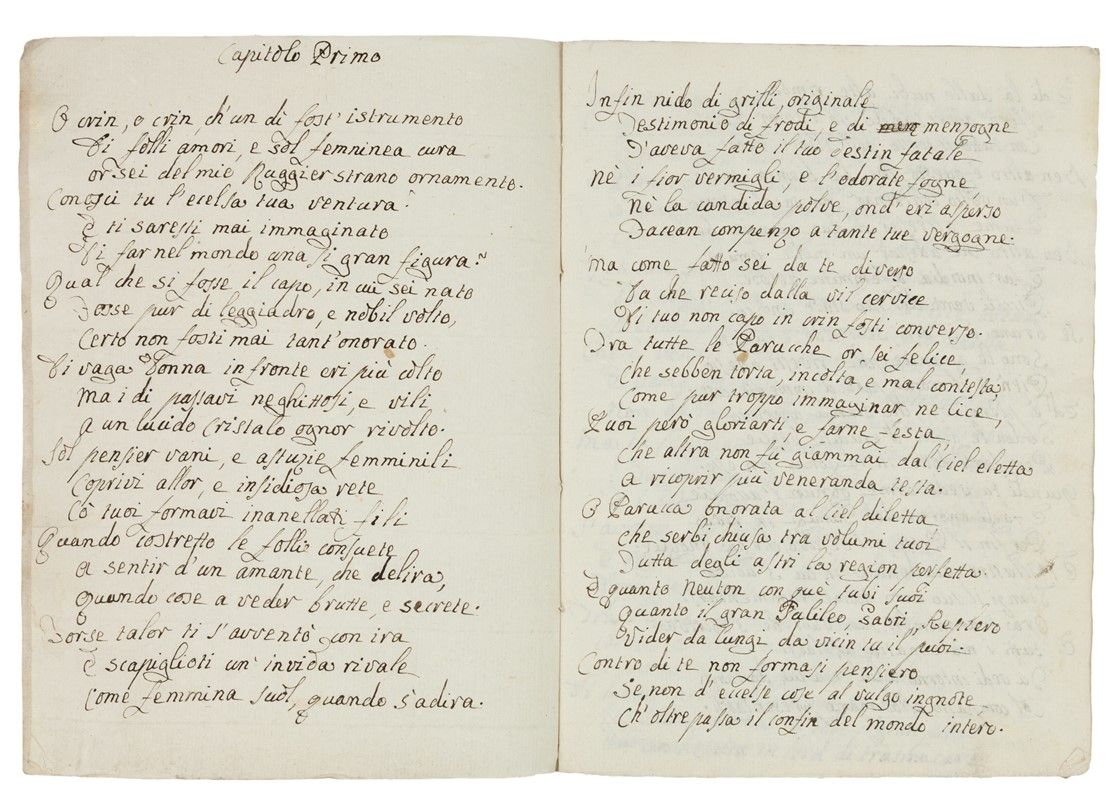 Capitolo Primo
O crin, o crin, ch'un di fost' istrumento
Di folli amori, e sol femminea cura
or sei del mio Ruggier strano ornamento.
Conosci tu l'ecelsa tua ventura?
E ti saresti mai immaginato
Di far nel mondo una si gran figura?
Qual che si fosse il capo, in cui sei nato
Fosse pur di leggiadro, e nobil volto,
Certo non fosti mai tant'onorato.
Di vaga Donna in fronte eri più colto
Ma i di passavi neghittosi, e vili
a un lucido cristalo ognor rivolto.
Sol pensier vani, e astuzie femminili
Coprivi allor, e insidiosa rete
Co tuoi formavi inanellati fili
Quando costretto le folli consuete
a sentir d'un amante, che delira,
quando cose a veder brutte, e secrete.
Forse talor ti s'avventò con ira
E scapiglioti un' invida rivale
Come femmina suol, quando s'adira.
Infin nido di grilli, originale
Testimonio di frodi, e di menzogne
T'aveva fatto il tuo destin fatale
nè i fior vermigli, e l'odorate sogne
Nè la candida polve, ond' eri asperso
Facean compenzo a tante tue vergogne.
ma come fatto sei da te diverso
Da che reciso dalla vil cervice
Di tuo non capo in crin fosti converso.
Fra tutte le Parucche or sei felice,
che sebben torta, incolta, e mal contesta,
Come pur troppo immaginar ne lice,
Puoi però gloriarti, e farne festa,
che altra non fù giammai dal Ciel eletta
a ricoprir più veneranda testa.
O Parucca onorata al Ciel diletta
che serbi chiusa tra volumi tuoi
Tutta degli astri la region perfetta
E quanto Neuton con que' tubi suoi
quanto il gran Galileo, Fabri, Keplero
Vider da lungi da vicin tu il puoi.
Contro di te non formasi pensiero
Se non d'eccelse cose al vulgo ingnote
Ch'oltrepassa il confin del mondo intero.